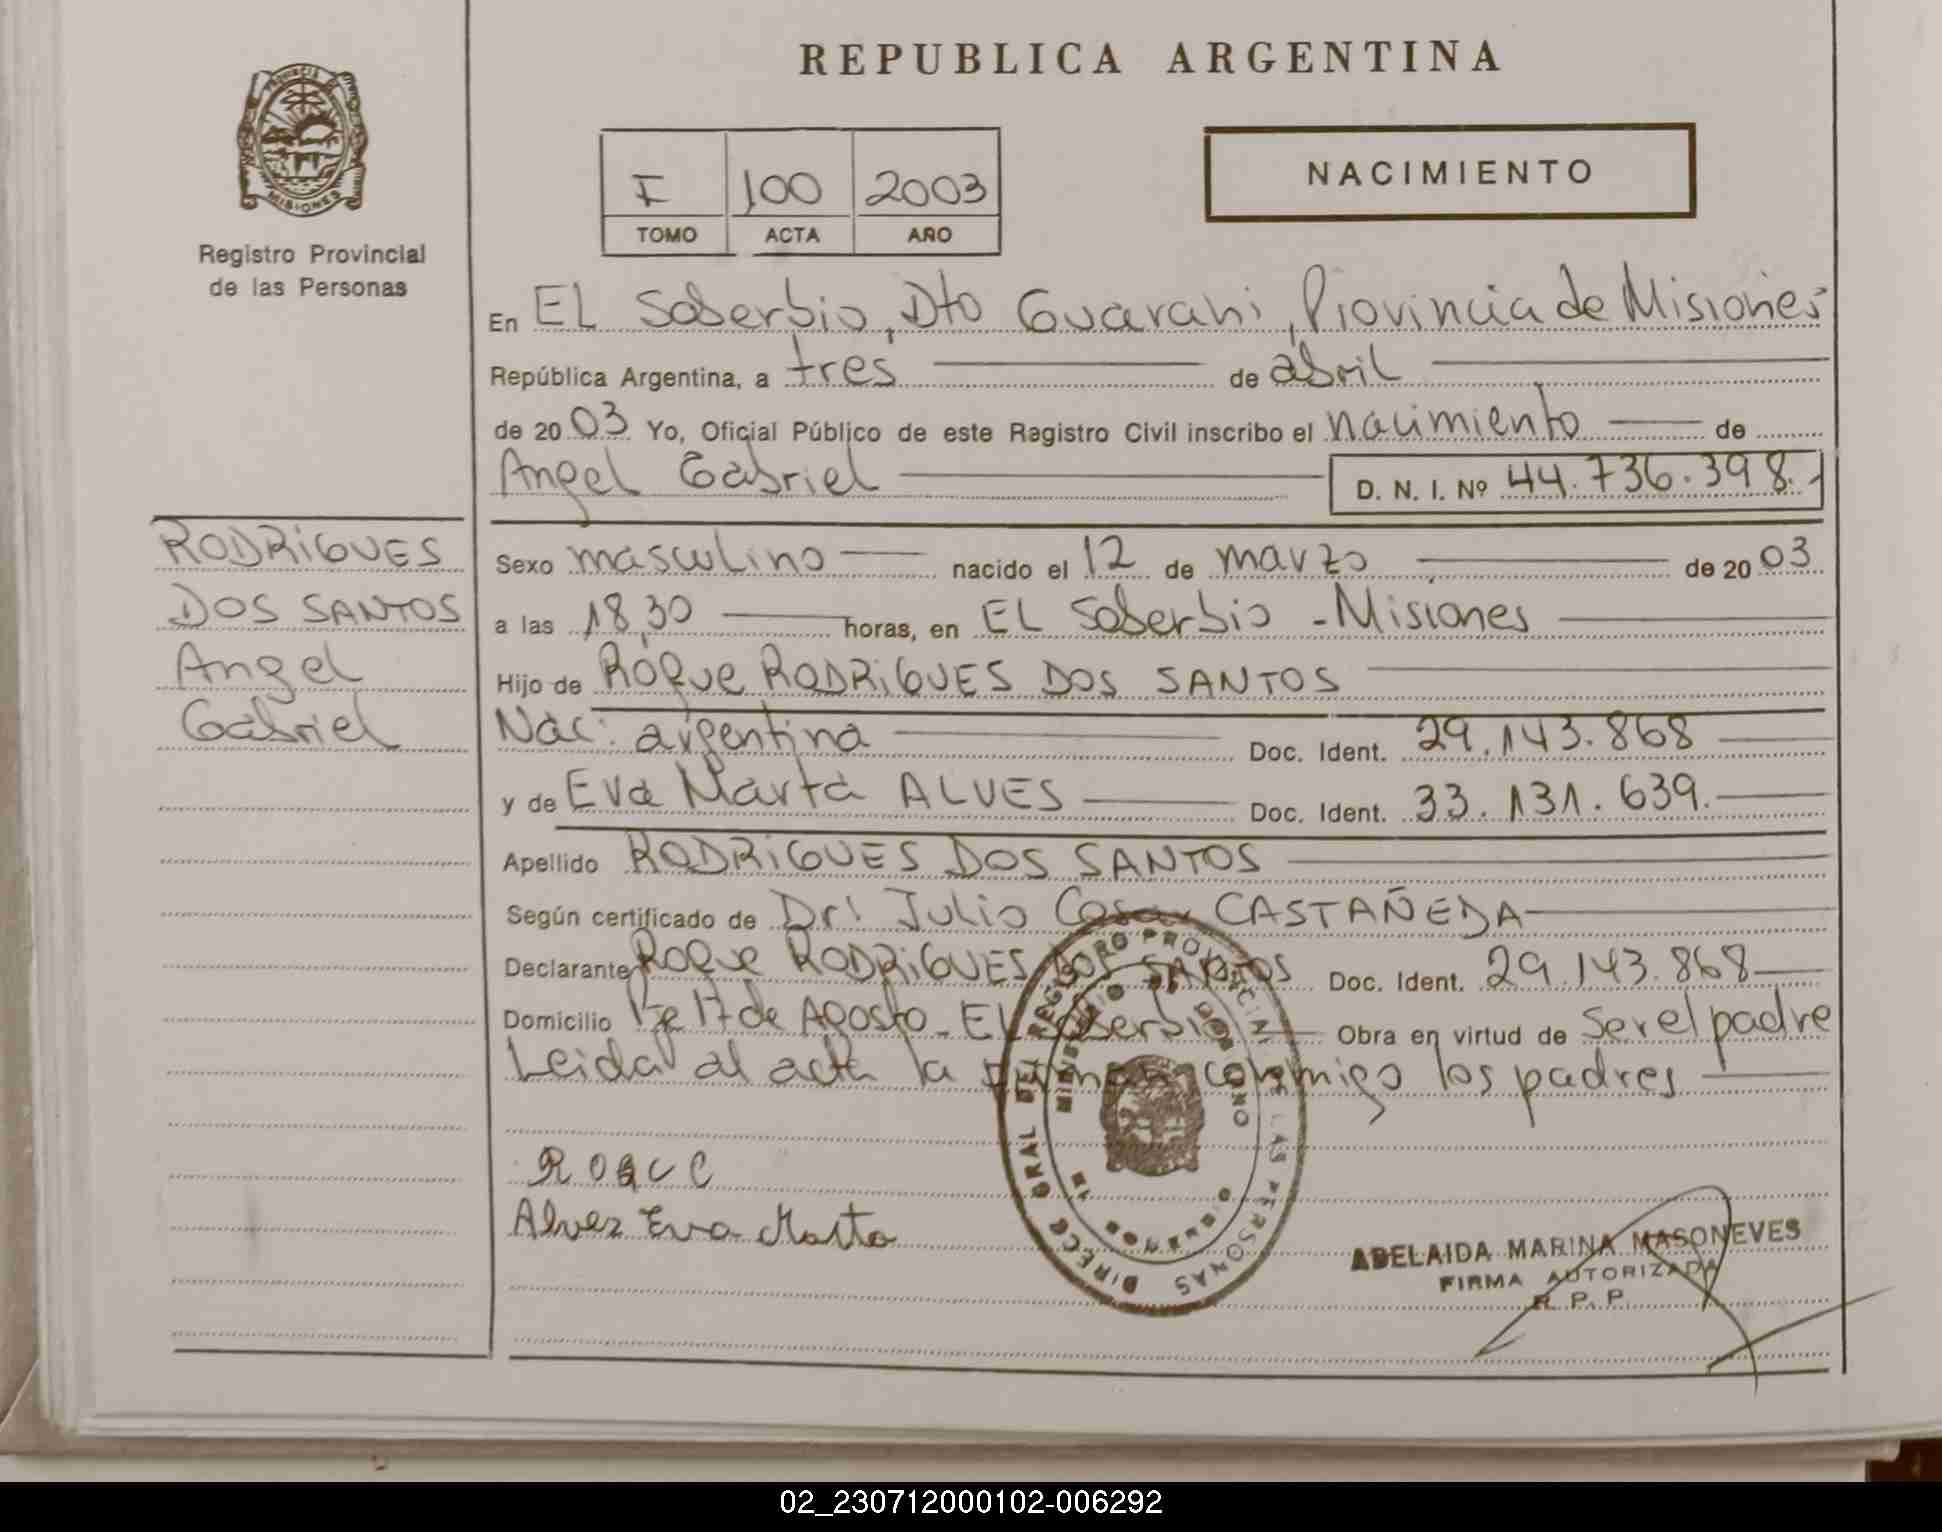 REPUBLICA ARGENTINA
PROVINCIA
MISIONES
Registro Provincial
de las Personas
I 100 2003
TOMO ACTA AÑO
NACIMIENTO
En EL Soberbio, Dto Guarani, Provincia de Misiones
República Argentina, a tres de abril
de 2003 Yo, Oficial Público de este Registro Civil inscribo el nacimiento de
Angel Gabriel D. N. I. Nº 44.736.398.
RODRiGUES
DOS SANTOS
Angel
Gabriel
Sexo masculino nacido el 12 de marzo de 2003
a las 18,30 horas, en EL Soberbio - Misiones
Hijo de Roque RODRiGUES DOS SANTOS
Nac: argentina Doc. Ident. 29.143.868
y de Eva Marta ALVES Doc. Ident. 33.131.639.
Apellido RODRIGUES DOS SANTOS
Según certificado de Dr: Julio Cesar CASTAÑEDA
Declarante Roque RODRiGUES DOS SANTOS Doc. Ident. 29.143.868
Domicilio 17 de Agosto - EL Soberbio Obra en virtud de Ser el padre
Leida al acta la firman conmigo los padres
ROQUE
Alvez Eva Marta
DIRECC. GRAL DEL REGISTRO PROVINCIAL DE LAS PERSONAS
MINISTERIO DE GOBIERNO
MISIONES
ADELAIDA MARINA MASONEVES
FIRMA AUTORIZADA
R. P. P.
02_230712000102-006292